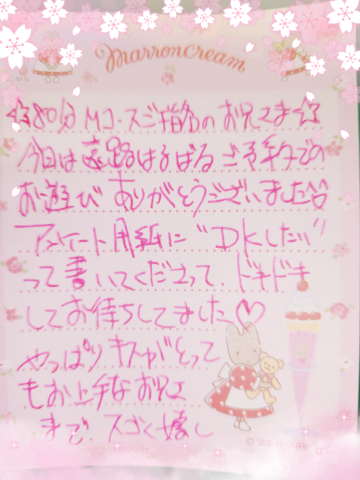 marroncream
☆80分Mコースご指名のお兄さま☆
今日は遠路はるばるご予約での
お遊びありがとうございました☆☆
アンケート用紙に"DKしたい"
って書いてくださって、ドキドキ
してお待ちしてました♡
やっぱりキスがとって
もお上手なお兄
さまで、スゴく嬉し